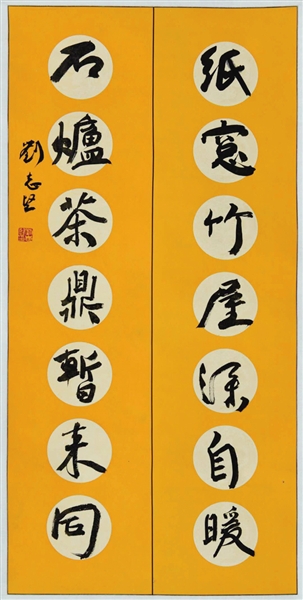 紙窓竹屋深自暖
石爐茶鼎暫来同
劉志坚